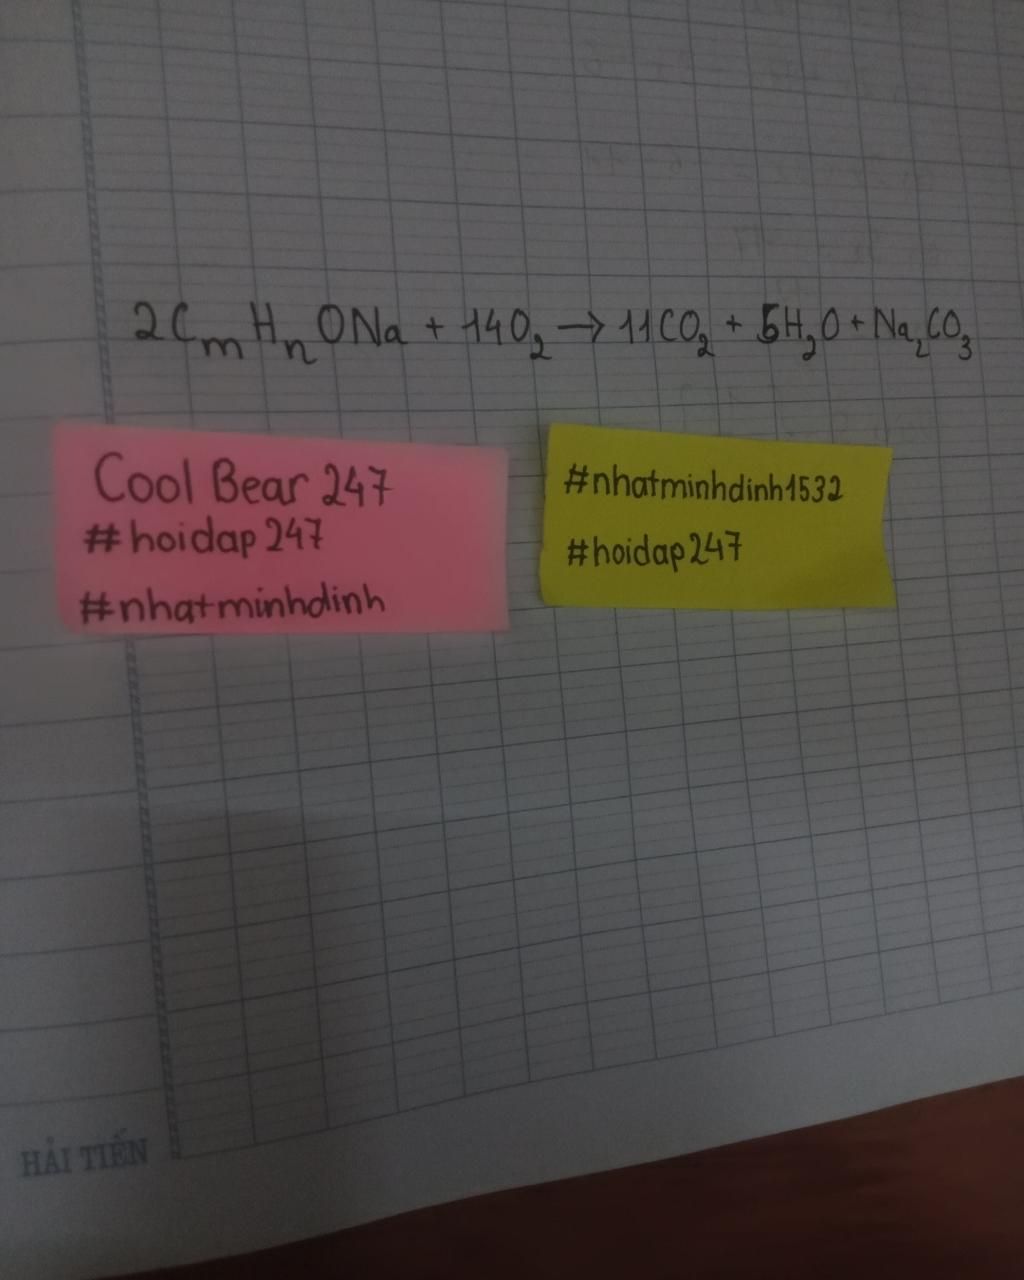 2CmHnONa + 14O₂ → 11CO₂ + 5H₂O + Na₂CO₃
Cool Bear 247
#hoidap247
#nhatminhdinh
#nhatminhdinh1532
#hoidap247
HẢI TIẾN